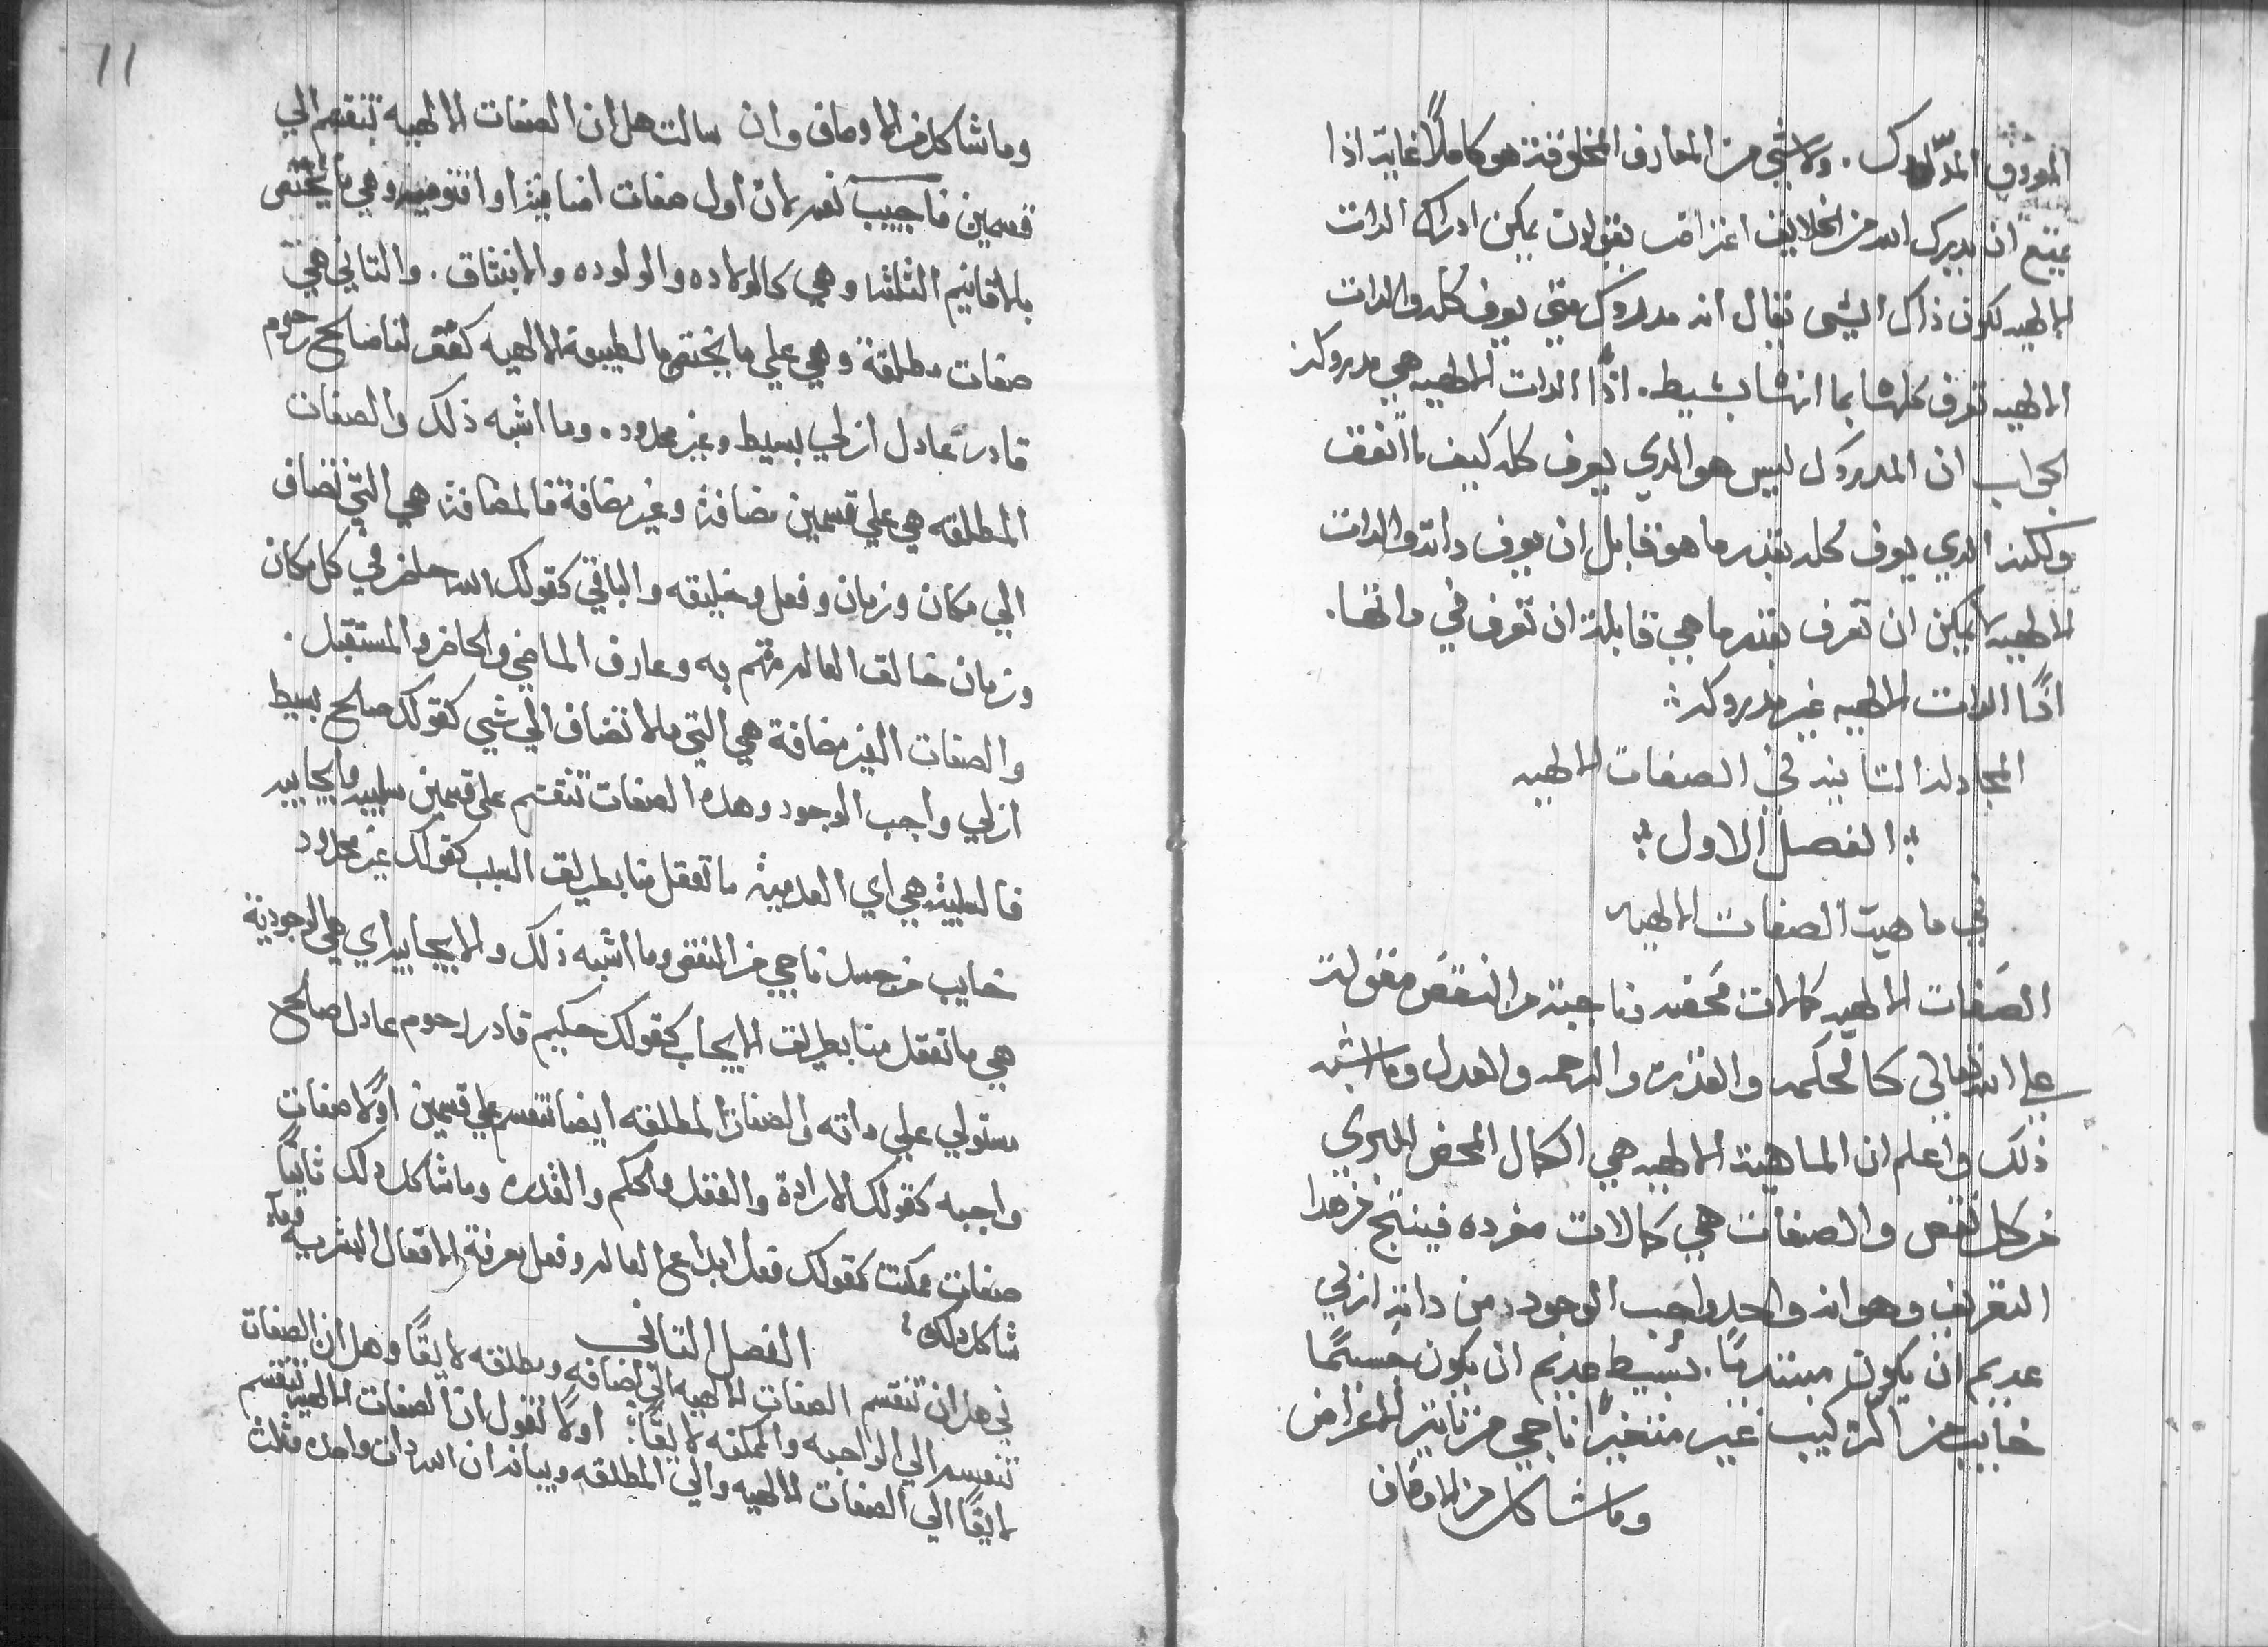 المعروف المدروك. ولا شي من المعارف المخلوقة هو كاملاً غايته اذا
يمتنع ان يدرك الله من الخلايق اعتراض بقولان يمكن ادراك الدات
الالهيه لكون ذاك الشي يقال انه مدروك متي يعرف كله والدات
الالهيه تعرف كلها بما انها بسيطه. اذًا الدات الالهيه هي مدروكه
الجواب ان المدروك ليس هو الدي يعرف كله كيف ما اتفق
ولكنه الدي يعرف كله بقدر ما هو قابل ان يعرف داته والدات
الالهيه لا يمكن ان تعرف بقدر ما هي قابلة ان تعرف في داتها.
اذًا الدات الالهيه غير مدروكه
المجادله التانيه في الصفات الالهيه
الفصل الاول
في ماهية الصفات الالهيه
الصفات الالهيه كمالات محضه ناجية من النقص مقوله
علي الله تعالي كالحكمه والقدره والرحمه والعدل وما اشبه
ذلك واعلم ان الماهية الالهيه هي الكمال المحض البري
من كل نقص والصفات هي كمالات مفرده فينتج من هدا
التعريف وهو انه واحد واجب الوجود من داته ازلي
عديم ان يكون مبتديًا. بسيط عديم ان يكون جسمًا
خايب من التركيب غير متغيرًا ناجي من تاتير الاعراض
وما شاكل من الاوصاف
11
وما شاكل من الاوصاف وان سالت هل ان الصفات الالهيه تنقسم الي
قسمين فاجيب نعم لان اول صفات اضافية او اقنوميه وهي ما يختص
بالاقانيم الثلثه وهي كالولاده والولوده والانبثاق. والتاني هي
صفات مطلقة وهي علي ما يختص بالطبيعة الالهيه كقولنا صالح رحوم
قادر عادل ازلي بسيط وغير محدود. وما اشبه ذلك والصفات
المطلقه هي علي قسمين مضافة وغير مضافة فالمضافة هي التي تضاف
الي مكان وزمان وفعل وخليقه والباقي كقولك الله حاضر في كل مكان
وزمان خالق العالم مهتم به وعارف الماضي والحاضر والمستقبل.
والصفات الغير مضافة هي التي ما لا تضاف الي شي كقولك صالح بسيط
ازلي واجب الوجود وهده الصفات تنقسم علي قسمين سلبيه وايجابيه
فالسلبية هي اي العدمية ما تعقل منا بطريق السلب كقولك غير محدود
خايب من جسد ناجي من النقص وما اشبه ذلك والايجابيه اي هي الوجودية
هي ما تعقل منا بطريق الايجاب كقولك حكيم قادر رحوم عادل صالح
مستولي علي داته والصفات المطلقه ايضا تنقسم علي قسمين اولًا صفات
واجبه كقولك الارادة والعقل والحكم والقدره وما شاكل دلك تانيًا
صفات ممكنه كقولك فعل ابداع العالم وفعل معرفة الافعال البشريه وما
شاكل دلك
الفصل التاني
في هل ان تنقسم الصفات الالهيه الي اضافه ومطلقه لايقًا وهل ان الصفات
تنقسم الي الواجبه والممكنه لايقًا: اولًا نقول ان الصفات الالهيه تنقسم
لايقًا الي الصفات الالهيه والي المطلقه وبيانه ان الله دات واحده مثلث